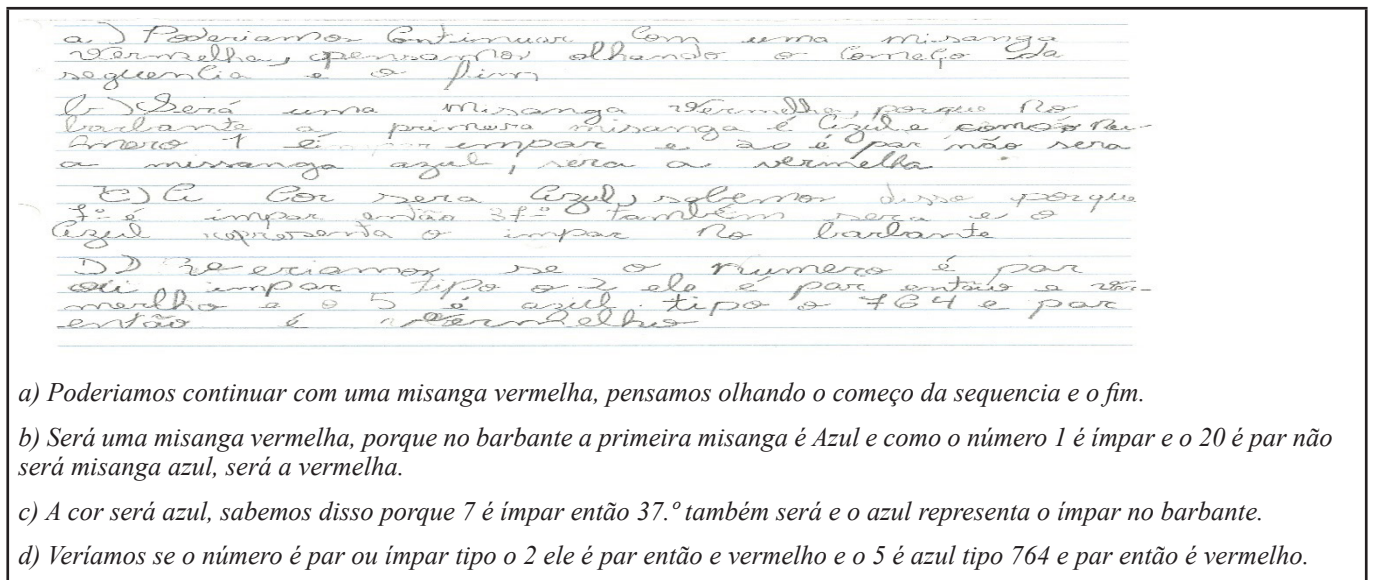 a.) Poderiamos Continuar Com uma misanga
Vermelha, pensamos olhando o Começo da
sequencia e o fim
b-) Será uma misanga Vermelha, porque No
barbante a primera misanga é Azul e como o Nu-
mero 1 é impar e 20 é par não sera
a missanga azul, sera a vermelha
C) A Cor sera Azul, sabemos disso porque
7º é impar então 37º também sera e o
Azul representa o impar no barbante
D) Veeriamos se o numero é par
ou impar tipo o 2 ele é par então e ver-
merlho e o 5 é azul tipo o 764 e par
então é vermelho
a) Poderiamos continuar com uma misanga vermelha, pensamos olhando o começo da sequencia e o fim.
b) Será uma misanga vermelha, porque no barbante a primeira misanga é Azul e como o número 1 é ímpar e o 20 é par não
será misanga azul, será a vermelha.
c) A cor será azul, sabemos disso porque 7 é ímpar então 37.º também será e o azul representa o ímpar no barbante.
d) Veríamos se o número é par ou ímpar tipo o 2 ele é par então e vermelho e o 5 é azul tipo 764 e par então é vermelho.